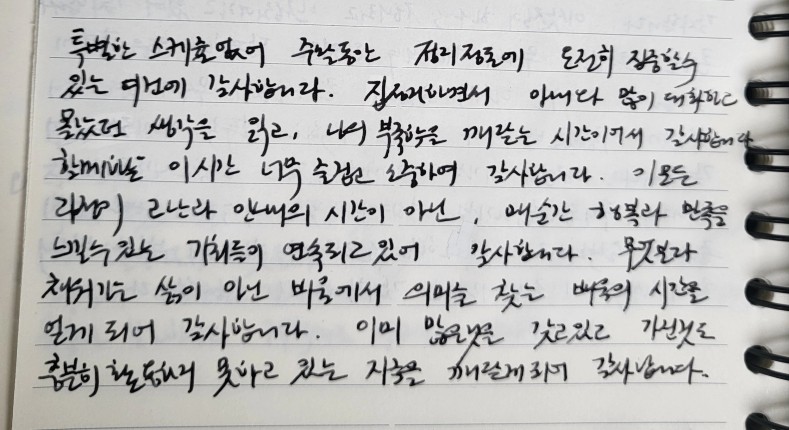 특별한 스케쥴없이 주말동안 정리정돈에 온전히 집중할수
있는 여건에 감사합니다. 집정리하면서 아내와 많이 대화하고
몰랐던 생각을 읽고, 나의 부족함을 깨닫는 시간이어서 감사합니다
함께하는 이시간 너무 즐겁고 소중하여 감사합니다. 이모든
과정이 고난과 인내의 시간이 아닌, 매순간 행복과 만족을
느낄수있는 기회들이 연속되고있어 감사합니다. 무엇보다
채워가는 삶이 아닌 비움에서 의미를 찾는 배움의 시간을
얻게 되어 감사합니다. 이미 많은것을 갖고있고 가진것도
충분히 활용하지 못하고 있는 자국을 깨닫게되어 감사합니다.